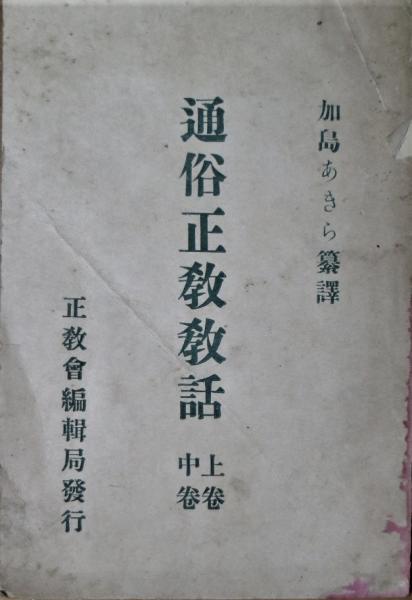 加島あきら纂譯
通俗正教教話
上卷
中卷
正教會編輯局發行